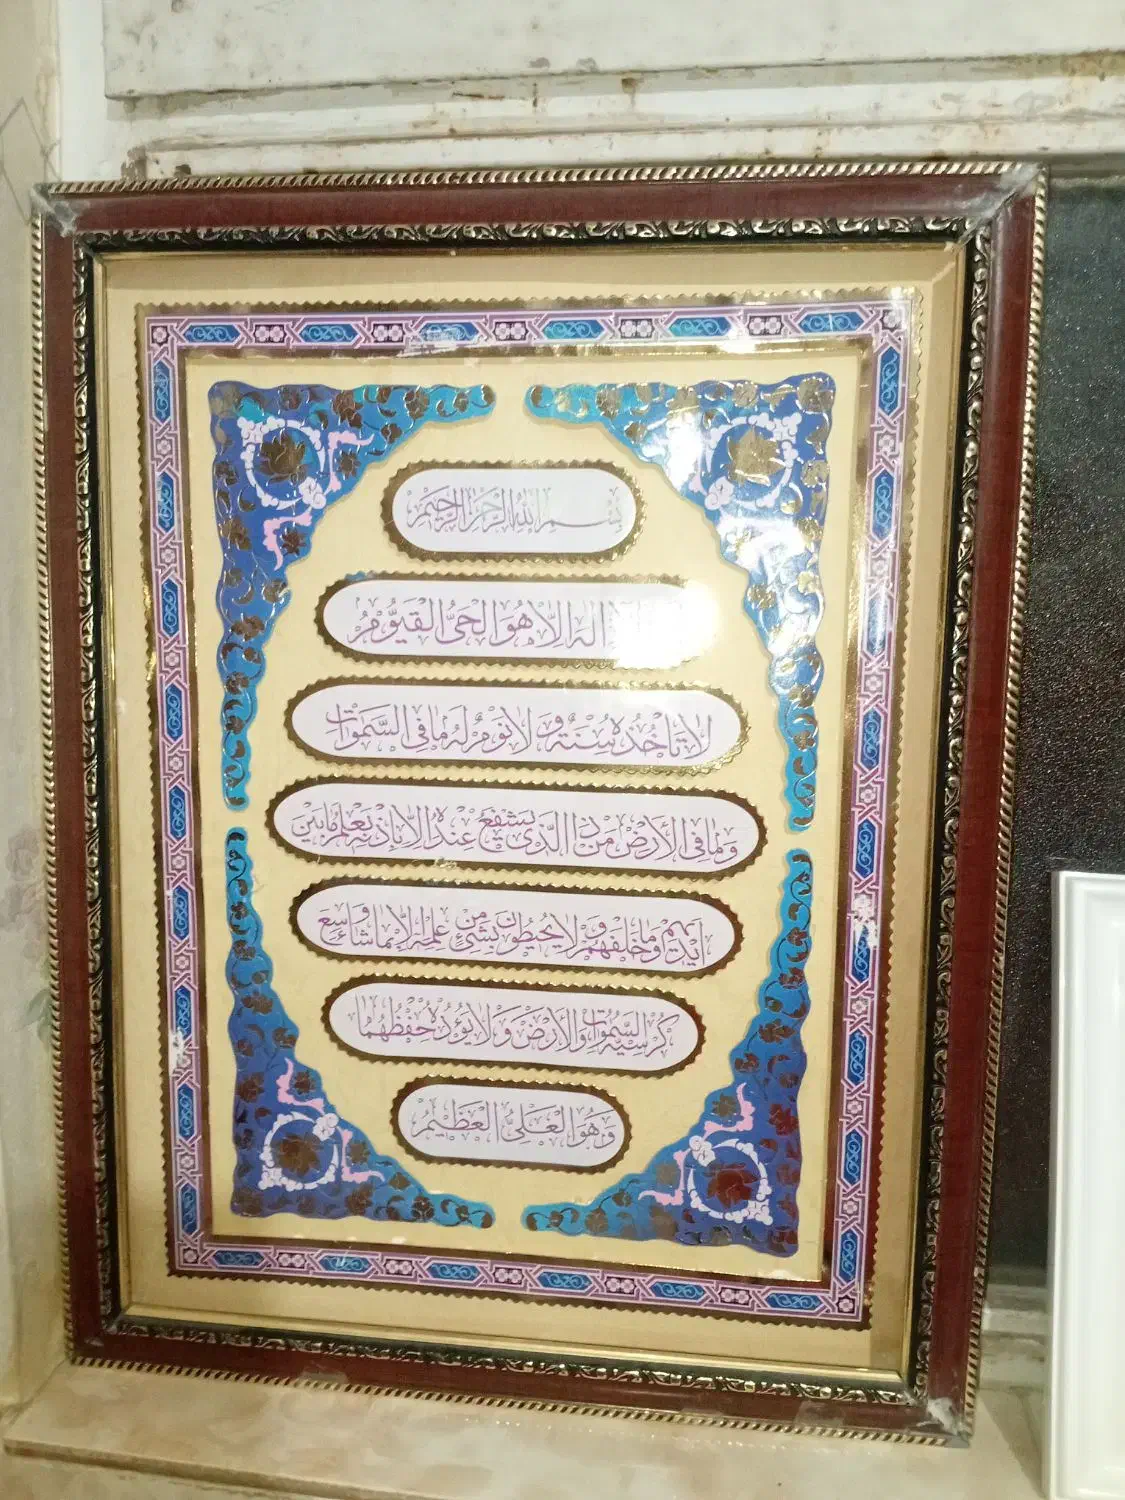 بِسْمِ اللهِ الرَّحْمٰنِ الرَّحِیْمِ
اِلٰهَ اِلَّا هُوَ الْحَیُّ الْقَیُّوْمُ
لَا تَأْخُذُهٗ سِنَةٌ وَّ لَا نَوْمٌ لَهٗ مَا فِی السَّمٰوَاتِ
وَمَا فِی الْاَرْضِ مَنْ ذَا الَّذِیْ یَشْفَعُ عِنْدَهٗ اِلَّا بِاِذْنِهٖ یَعْلَمُ مَا بَیْنَ
اَیْدِیْهِمْ وَمَا خَلْفَهُمْ وَ لَا یُحِیْطُوْنَ بِشَیْءٍ مِنْ عِلْمِهٖ اِلَّا بِمَا شَاءَ وَسِعَ
كُرْسِیُّهُ السَّمٰوٰتِ وَالْاَرْضَ وَ لَا یَؤُدُهٗ حِفْظُهُمَا
وَهُوَ الْعَلِیُّ الْعَظِیْمُ